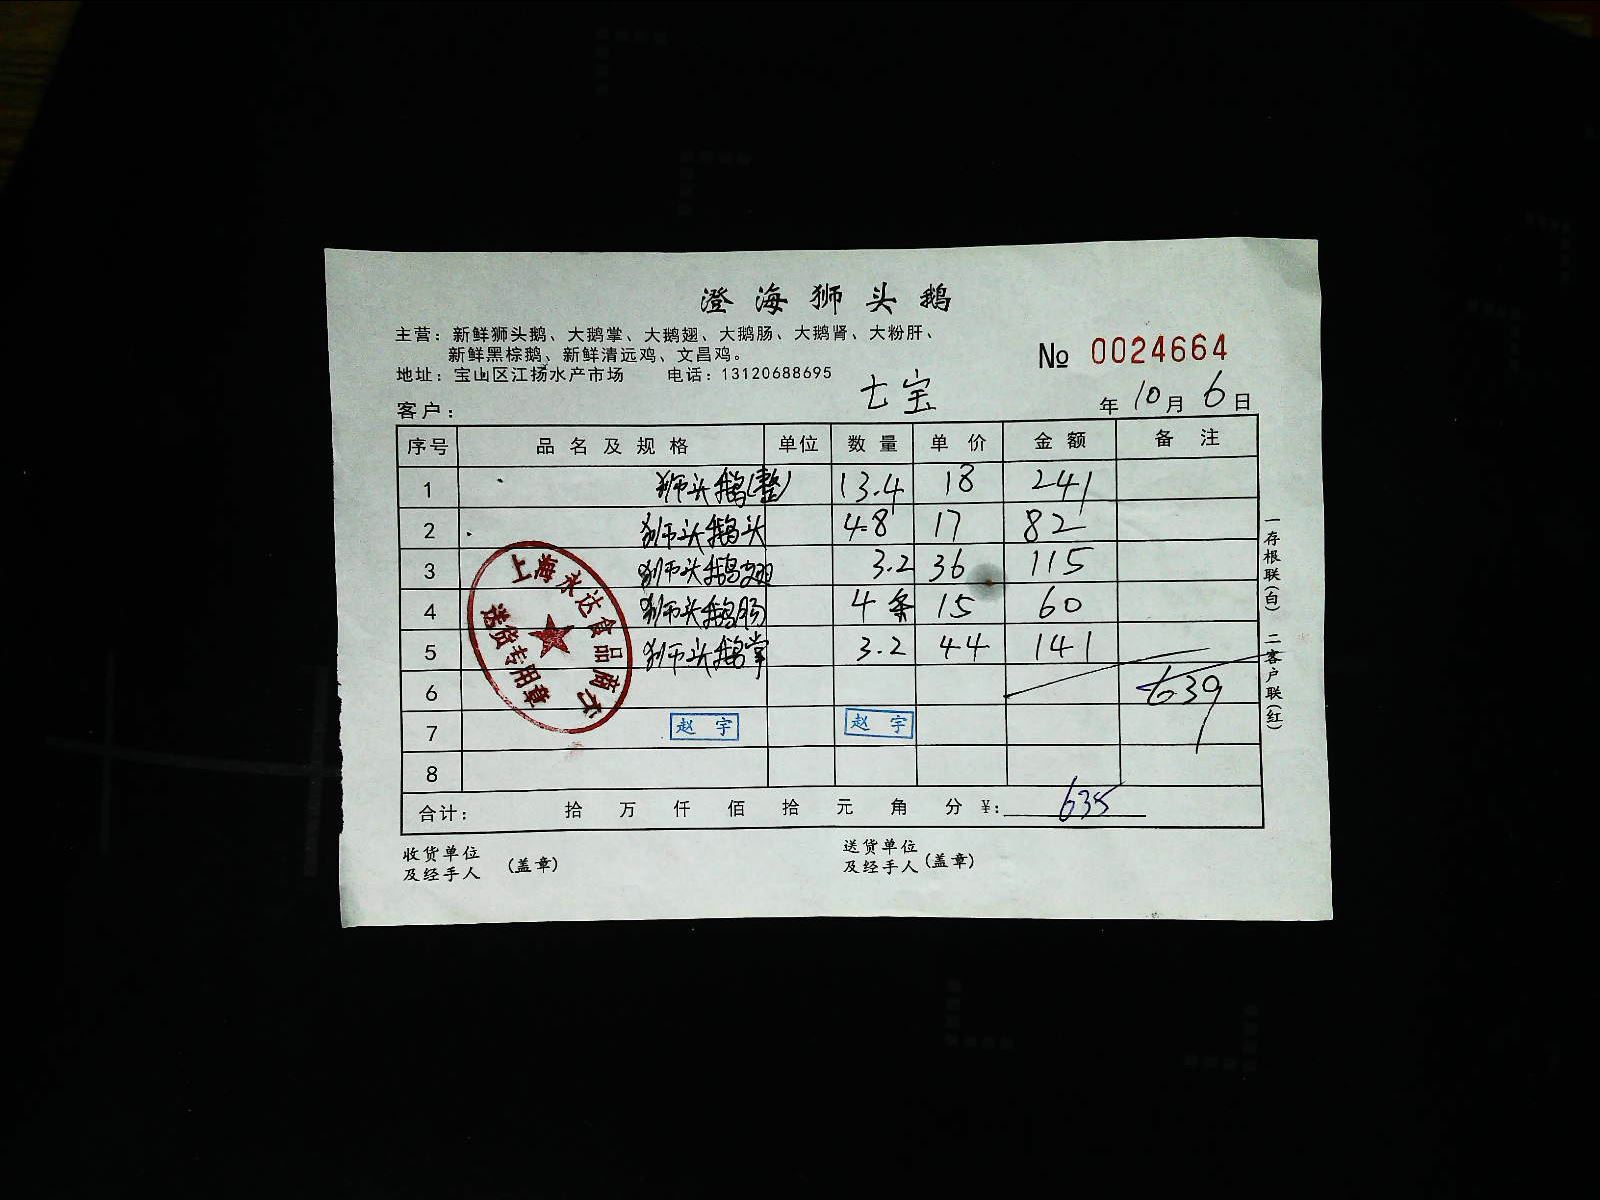 澄海狮头鹅
主营：新鲜狮头鹅、大鹅掌、大鹅翅、大鹅肠、大鹅肾、大粉肝、
新鲜黑棕鹅、新鲜清远鸡、文昌鸡。
№ 0024664
地址：宝山区江扬水产市场 电话：13120688695
客户： 七宝 年 10 月 6 日
序号 品名及规格 单位 数量 单价 金额 备注
1 狮头鹅(整) 13.4 18 241
2 狮头鹅头 4.8 17 82
3 狮头鹅翅 3.2 36 115
4 狮头鹅肠 4条 15 60
5 狮头鹅掌 3.2 44 141
6 639
7 赵宇 赵宇
8
合计： 拾 万 仟 佰 拾 元 角 分 ¥： 635
收货单位 及经手人 (盖章)
送货单位 及经手人 (盖章)
一存根联(白) 二客户联(红)
上海永达食品商行
送货专用章